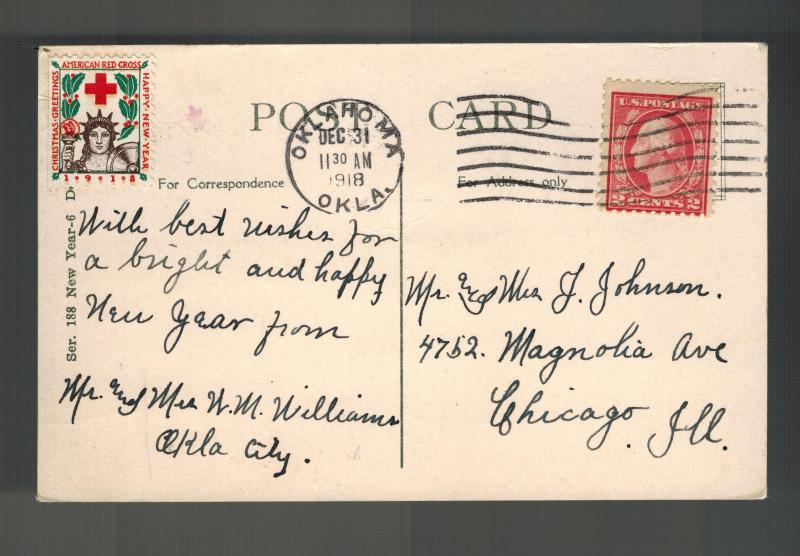 AMERICAN RED CROSS
CHRISTMAS GREETINGS
HAPPY NEW YEAR
1918
POST CARD
OKLAHOMA
DEC 31
11 30 AM
1918
OKLA.
U.S. POSTAGE
2 CENTS 2
For Correspondence
For Address only
Ser. 188 New Year-6 D
With best wishes for
a bright and happy
New Year from
Mr. and Mrs W. M. Williams
Okla City.
Mr. and Mrs J. Johnson.
4752. Magnolia Ave
Chicago. Ill.